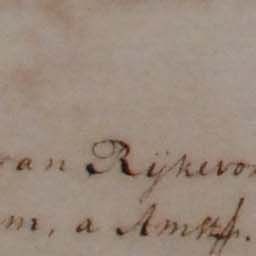 van Rÿkevor
m, a Amst.